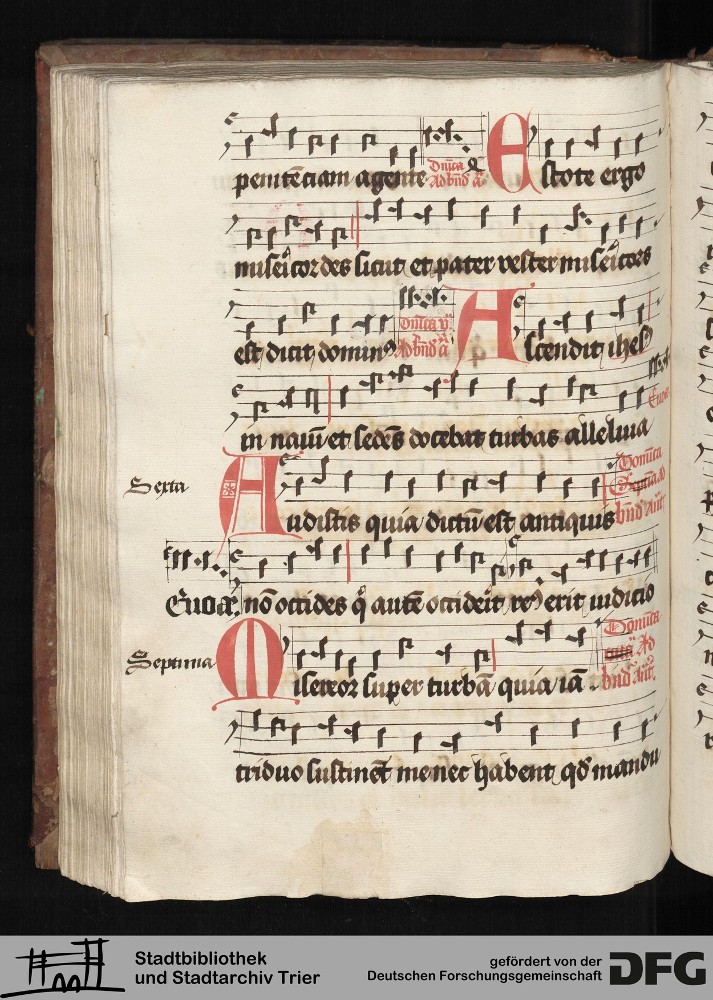 penitēciam agente Dn̄ica Ad bn̄d a Estote ergo
misericordes sicut et pater vester misericors
est dicit dominꝰ Dn̄ica v Ad bn̄d a Ascendit ihesꝰ
in nauī et sedēs docebat turbas alleluia Euouae
Sexta Audistis quia dictū est antiquis Domīca Septīa Ad bn̄d Ant̄
Euouae nō occides q̄ autē occiderit reꝰ erit iudicio
Septima Misereor super turbā quia iā Domīca Ad bn̄d Ant̄
triduo sustinet me nec habent qd̄ mandu
Stadtbibliothek
und Stadtarchiv Trier
gefördert von der
Deutschen Forschungsgemeinschaft
DFG